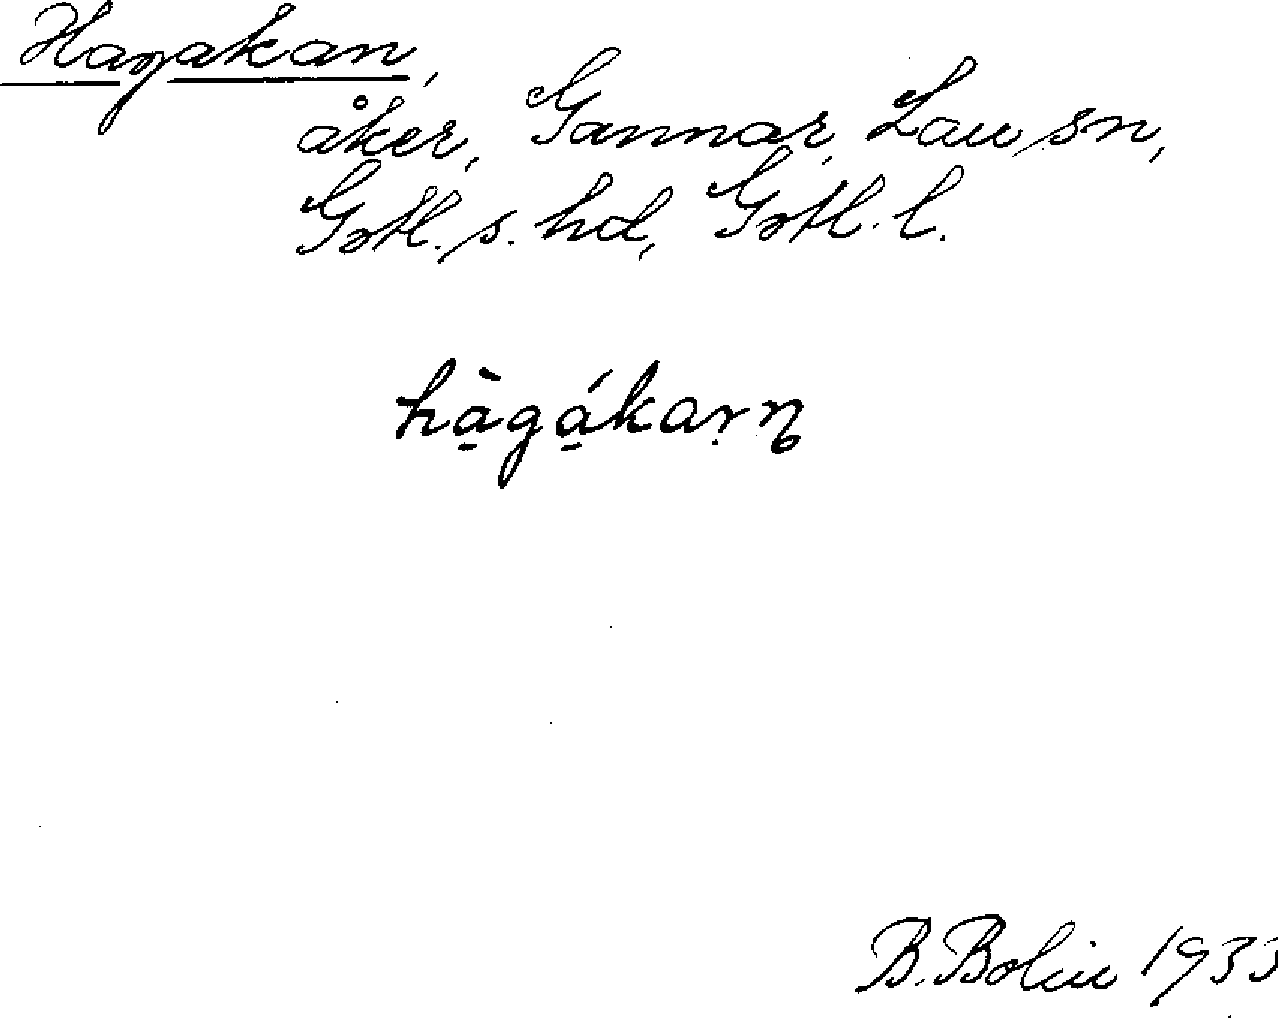 Hagakan,
åker, Gannar, Lau sn,
Gotl. s. hd, Gotl. l.
hà̱gá̱kaṛŋ
B. Bolin 1933